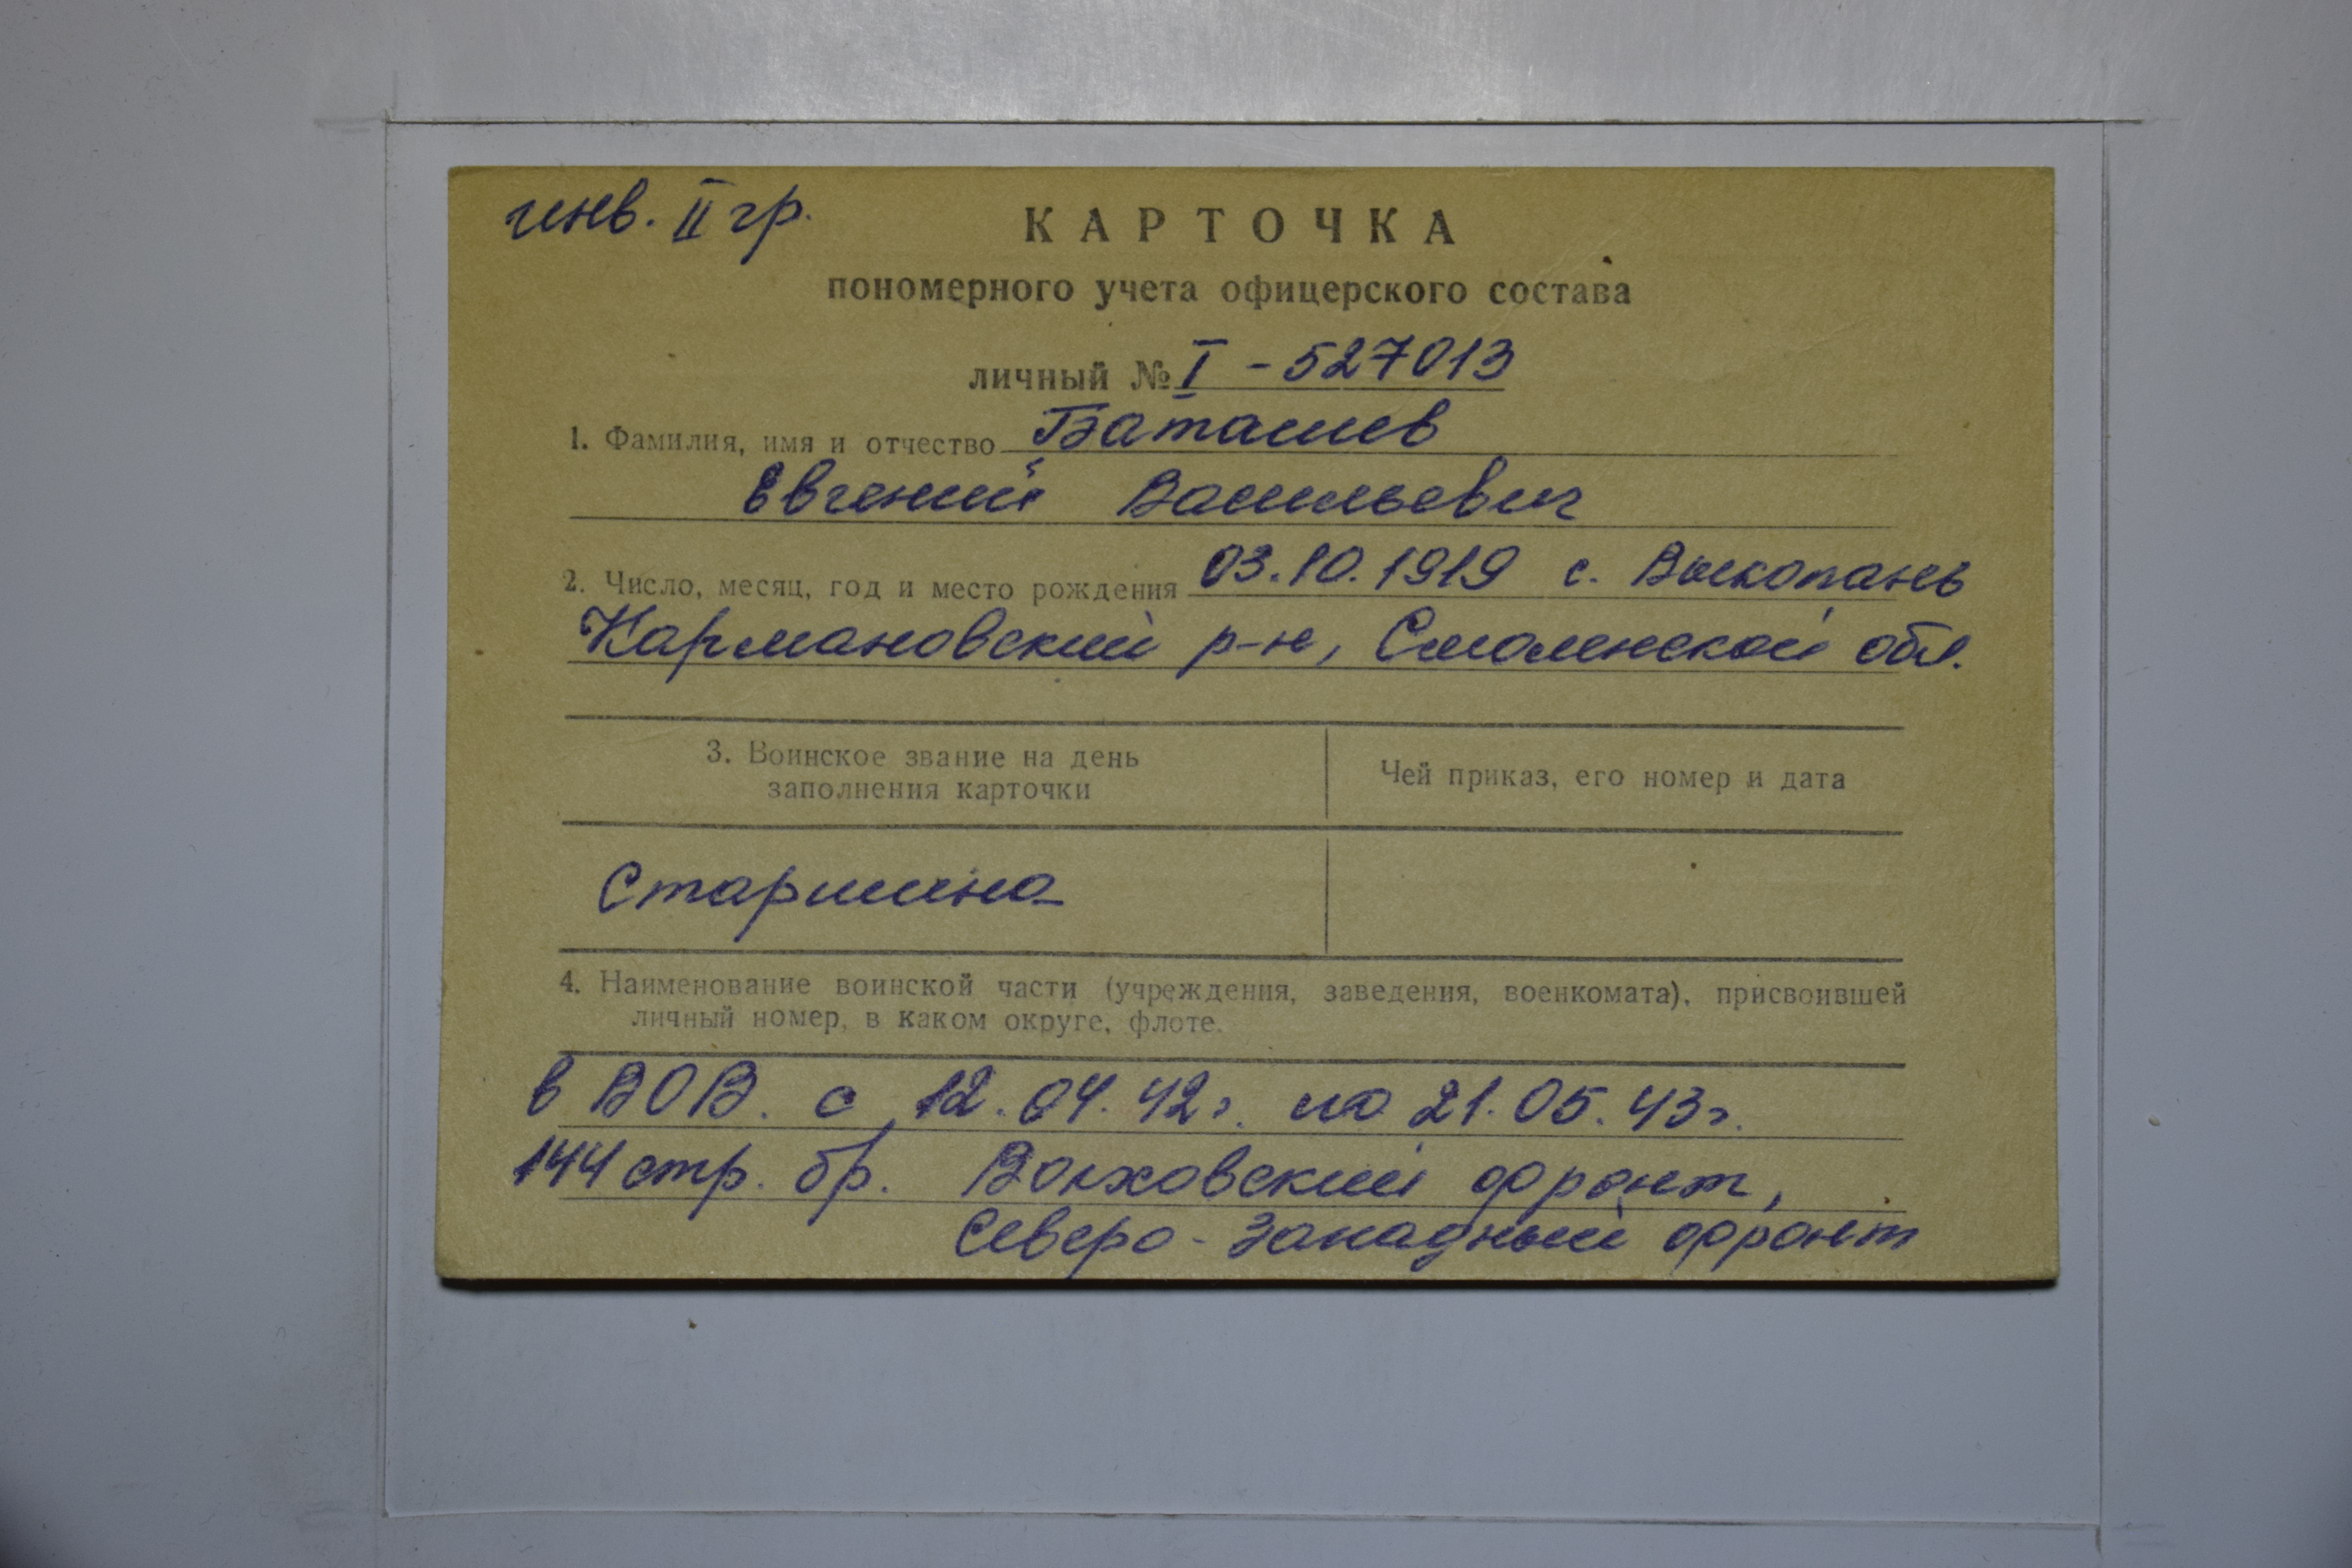 инв. II гр.
КАРТОЧКА
пономерного учета офицерского состава
личный № I - 527013
1. Фамилия, имя и отчество Баташев
Евгений Васильевич
2. Число, месяц, год и место рождения 03.10.1919 с. Выкопань
Кармановский р-н, Смоленской обл.
3. Воинское звание на день
заполнения карточки
Чей приказ, его номер и дата
Старшина
4. Наименование воинской части (учреждения, заведения, военкомата), присвоившей
личный номер, в каком округе, флоте.
в ВОВ. с 12.04.42г. по 21.05.43г.
144 стр. бр. Волховский фронт,
Северо-Западный фронт